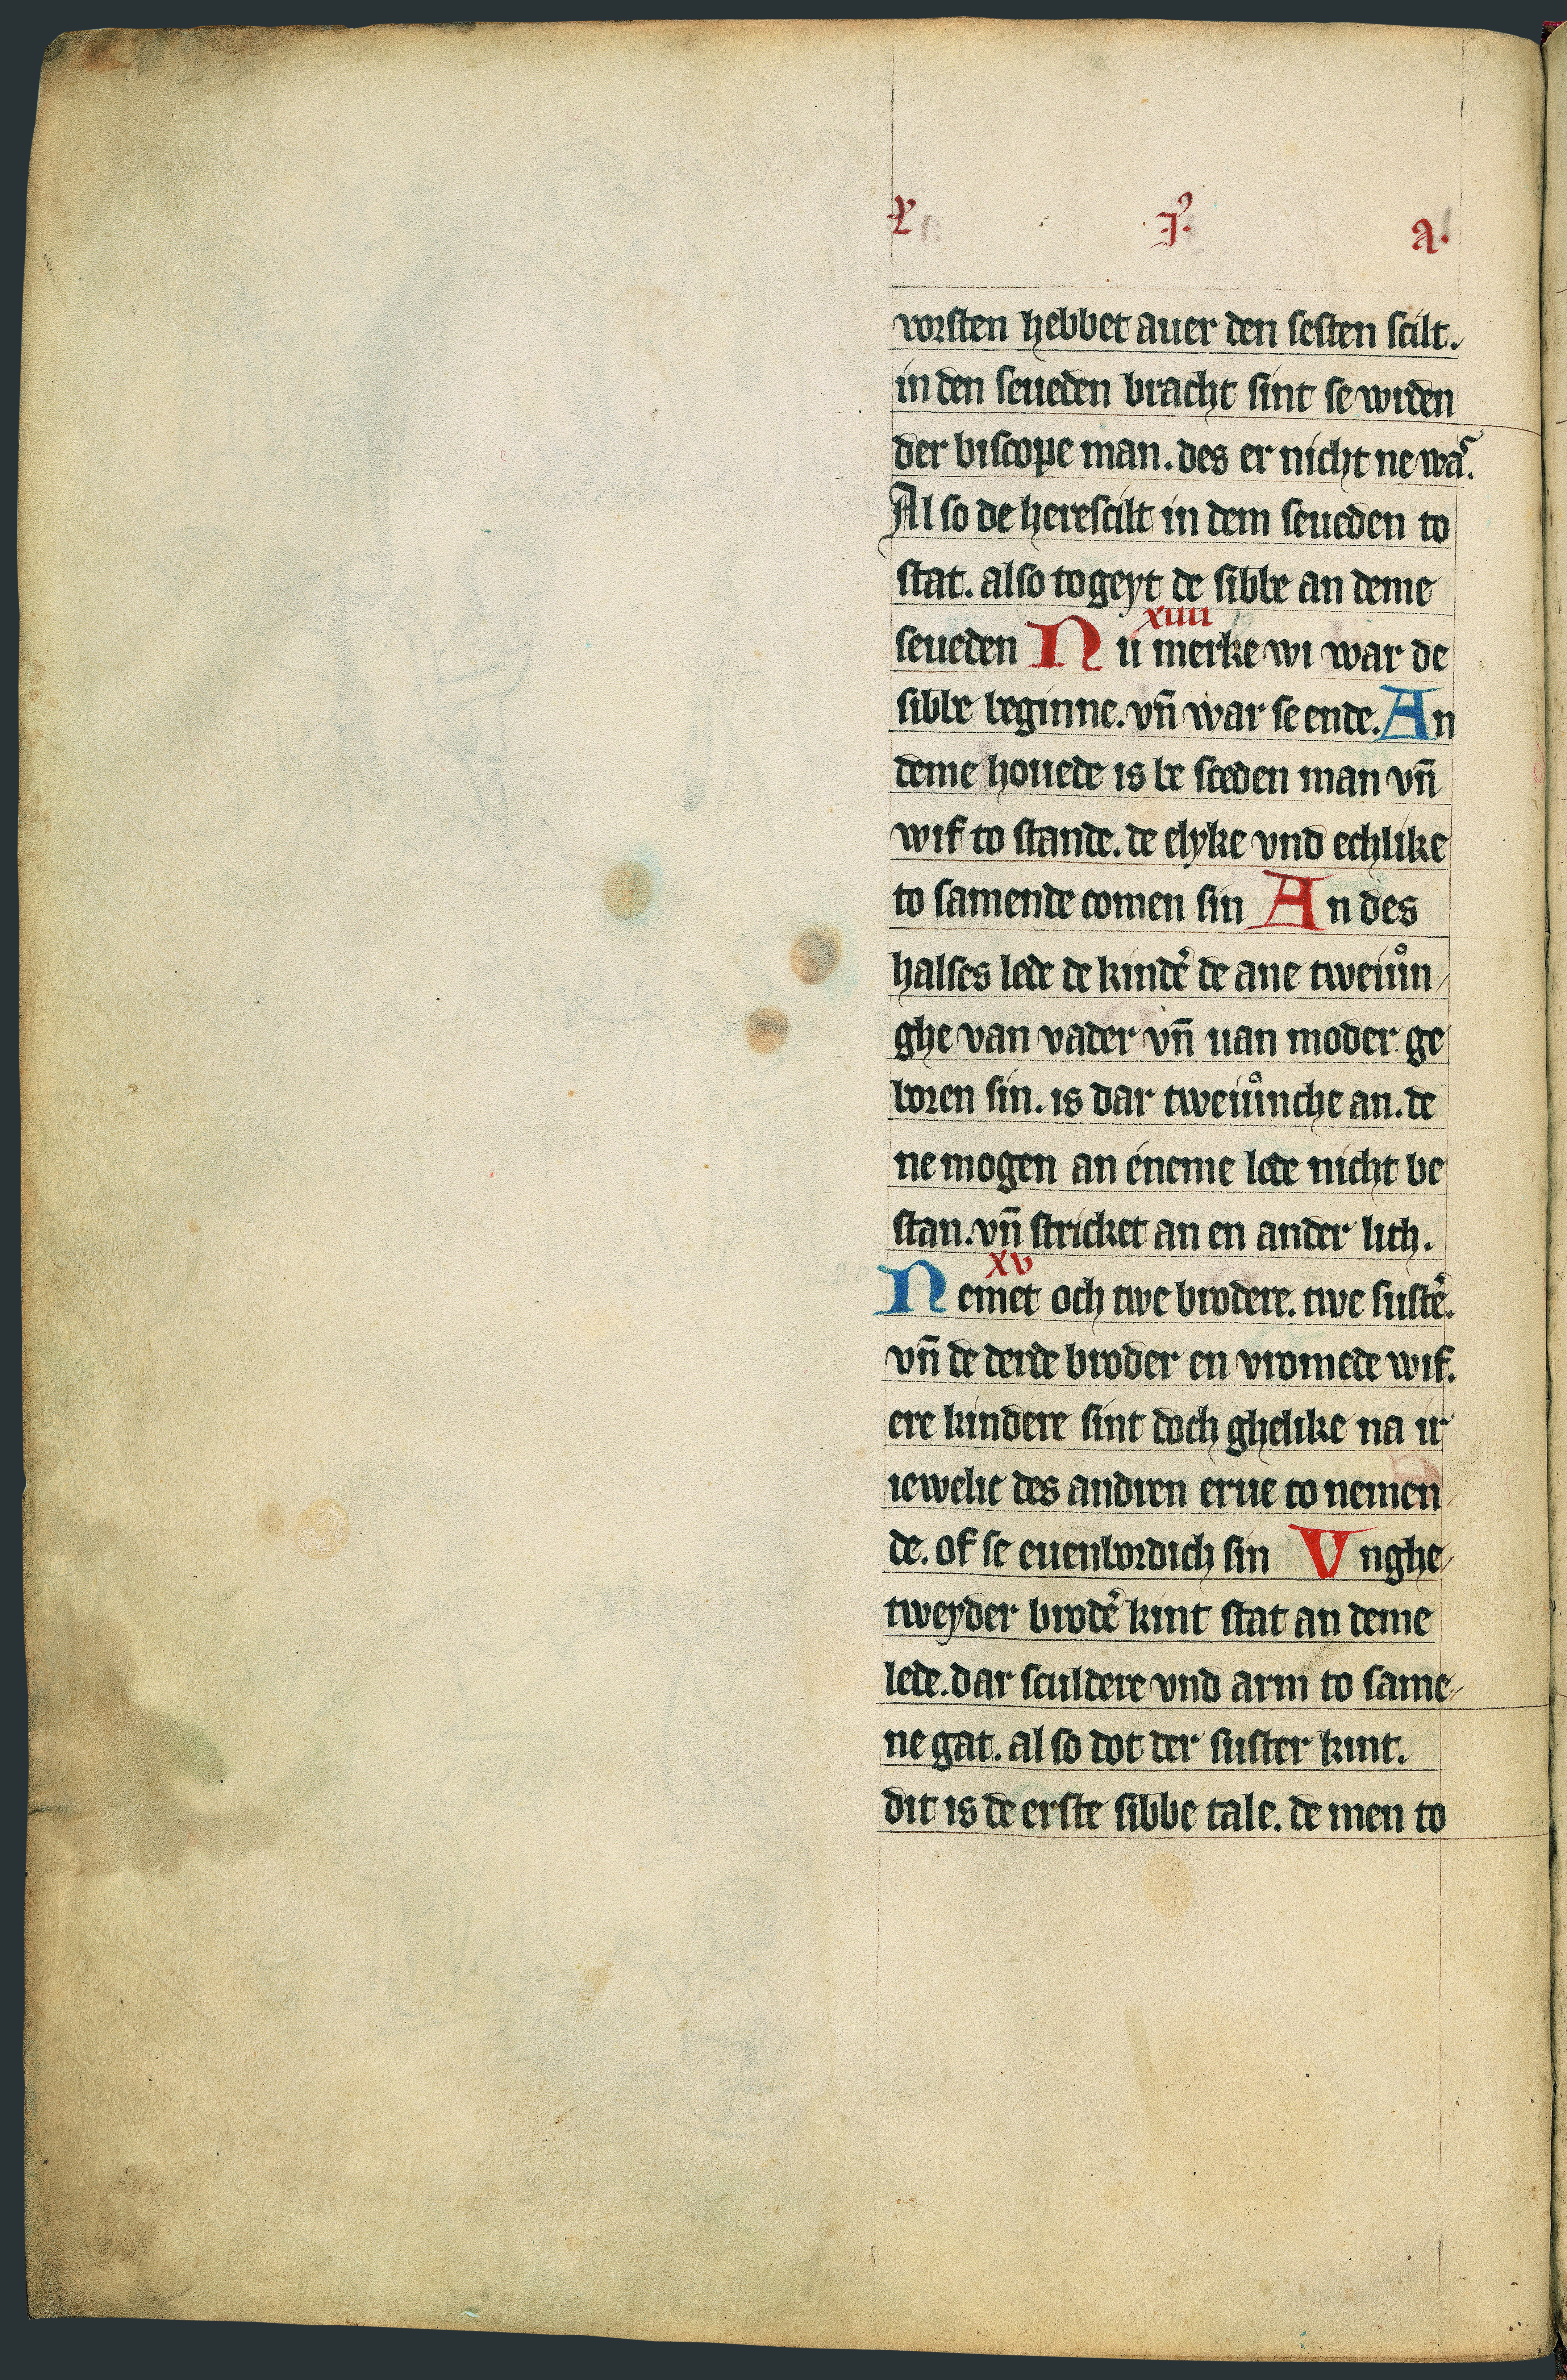 L. .I. a.
vorsten hebbet auer den sesten scilt.
in den seueden bracht sint se wrden
der biscope man. des er nicht ne was.
Al so de herescilt in dem seueden to
stat. also togeyt de sibbe an deme
xiiii
seueden Nu merke wi war de
sibbe beginne. vn̄ war se ende. An
deme houede is be sceden man vn̄
wif to stande. de elyke vnd echlike
to samende comen sin An des
halses lede de kindẽ de ane tweiůn
ghe van vader vn̄ uan moder ge
boren sin. is dar tweiůnche an. de
ne mogen an éneme lede nicht be
stan. vn̄ stricket an en ander lith.
xv
Nemet och twe brodere. twe sustẽ.
vn̄ de derde broder en vromede wif.
ere kindere sint doch ghelike na ir
iewelic des andren erue to nemen
de. of se euenbordich sin Vnghe
tweyder brodẽ kint stat an deme
lede. dar sculdere vnd arm to same
ne gat. al so dot der suster kint.
dit is de erste sibbe tale. de men to